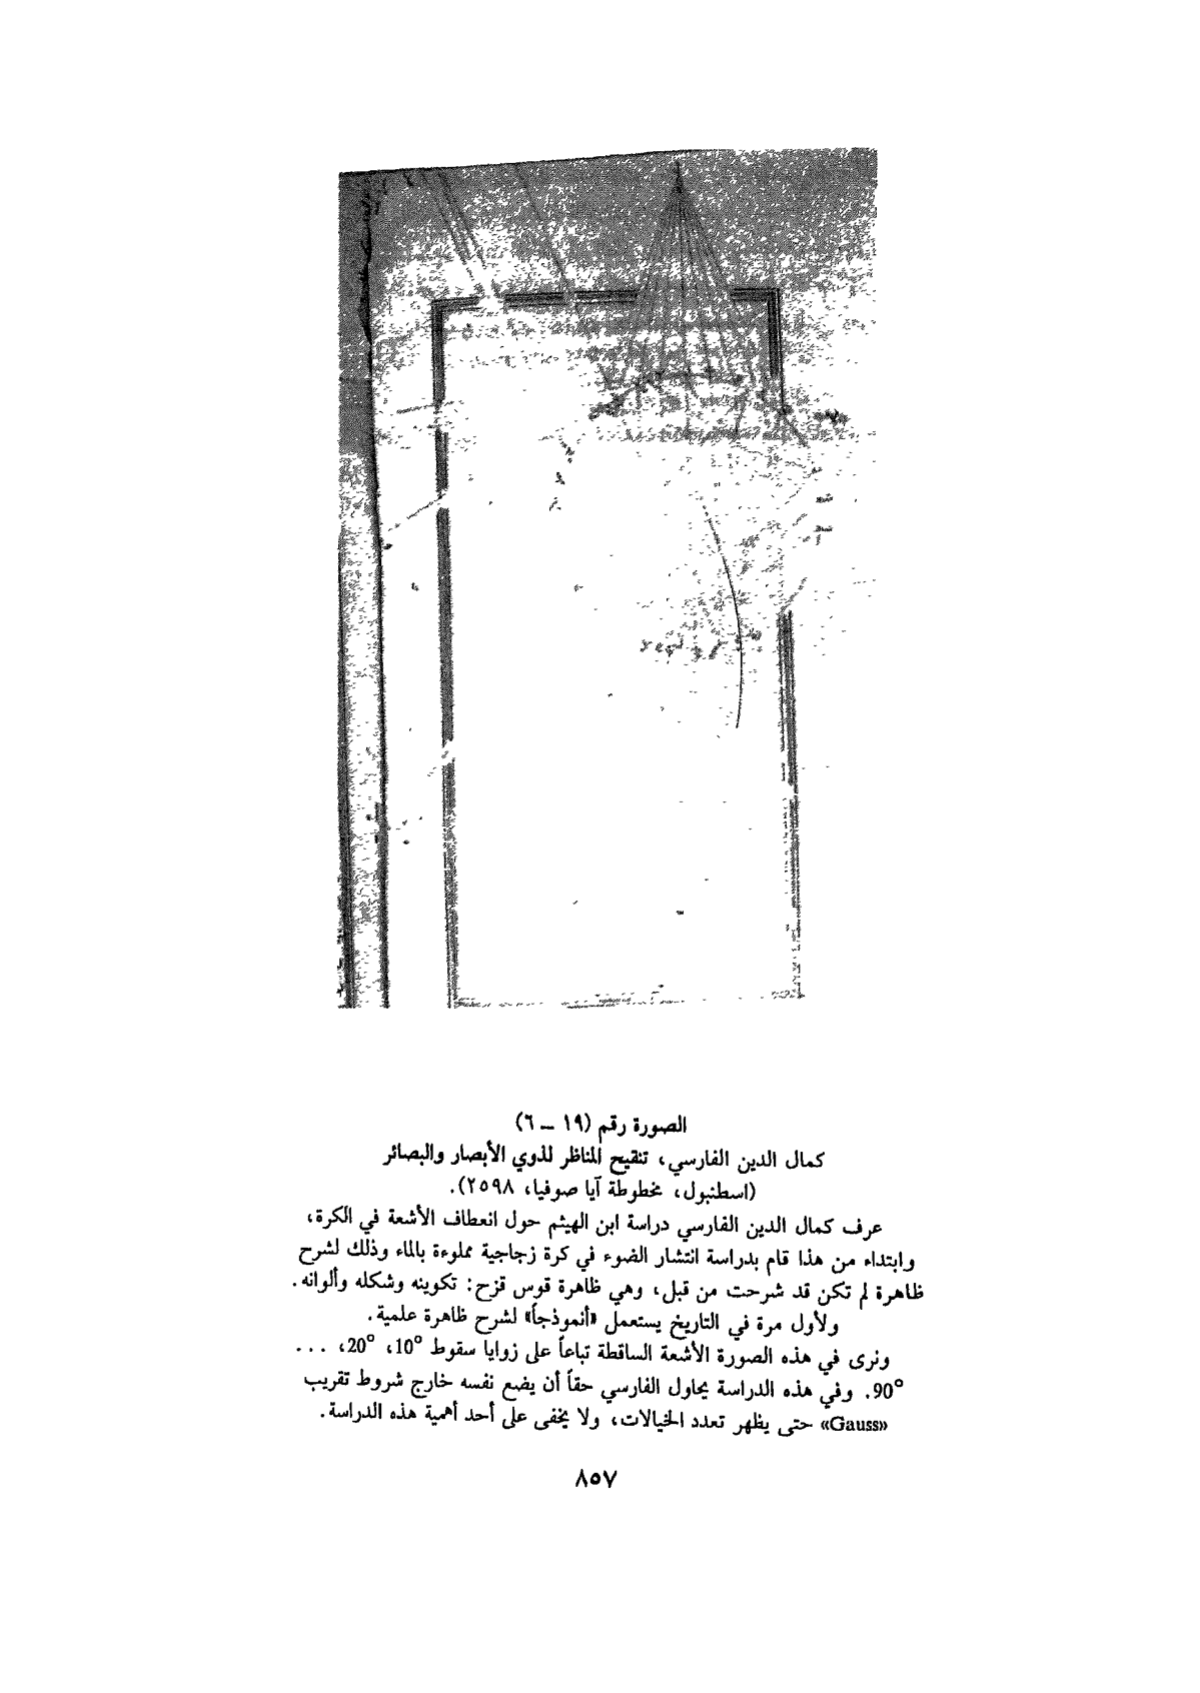 الصورة رقم (١٩ – ٦)
كمال الدين الفارسي، تنقيح المناظر لذوي الأبصار والبصائر
(اسطنبول، مخطوطة آيا صوفيا، ٢٥٩٨).
عرف كمال الدين الفارسي دراسة ابن الهيثم حول انعطاف الأشعة في الكرة،
وابتداء من هذا قام بدراسة انتشار الضوء في كرة زجاجية مملوءة بالماء وذلك لشرح
ظاهرة لم تكن قد شرحت من قبل، وهي ظاهرة قوس قزح: تكوينه وشكله وألوانه.
ولأول مرة في التاريخ يستعمل «أنموذجاً» لشرح ظاهرة علمية.
ونرى في هذه الصورة الأشعة الساقطة تباعاً على زوايا سقوط 10°، 20°، ...
90°. وفي هذه الدراسة يحاول الفارسي حقاً أن يضع نفسه خارج شروط تقريب
«Gauss» حتى يظهر تعدد الخيالات، ولا يخفى على أحد أهمية هذه الدراسة.
٨٥٧